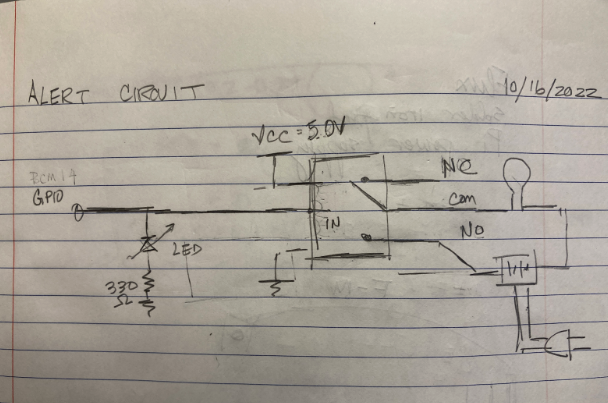 ALERT CIRCUIT
10/16/2022
VCC = 5.0V
NC
BCM 14
GPIO
COM
IN
NO
LED
330
Ω